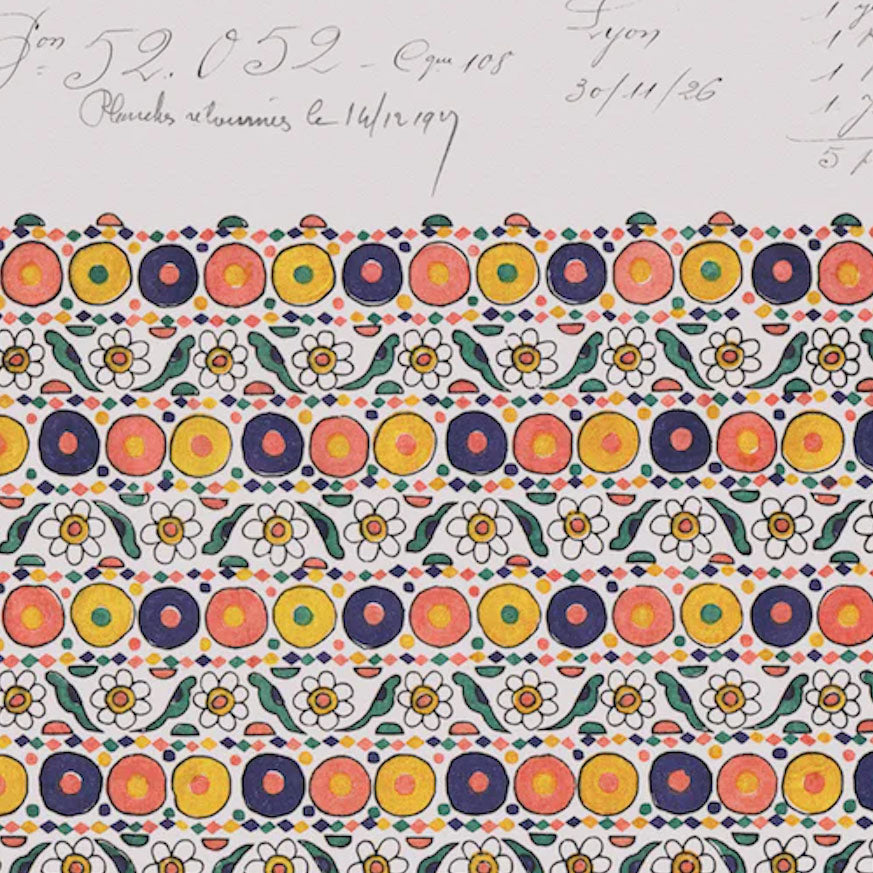 52.052 - Cque 108
Planches retournées le 14/12 1927
Lyon
30/11/26
1
1
1
1
5